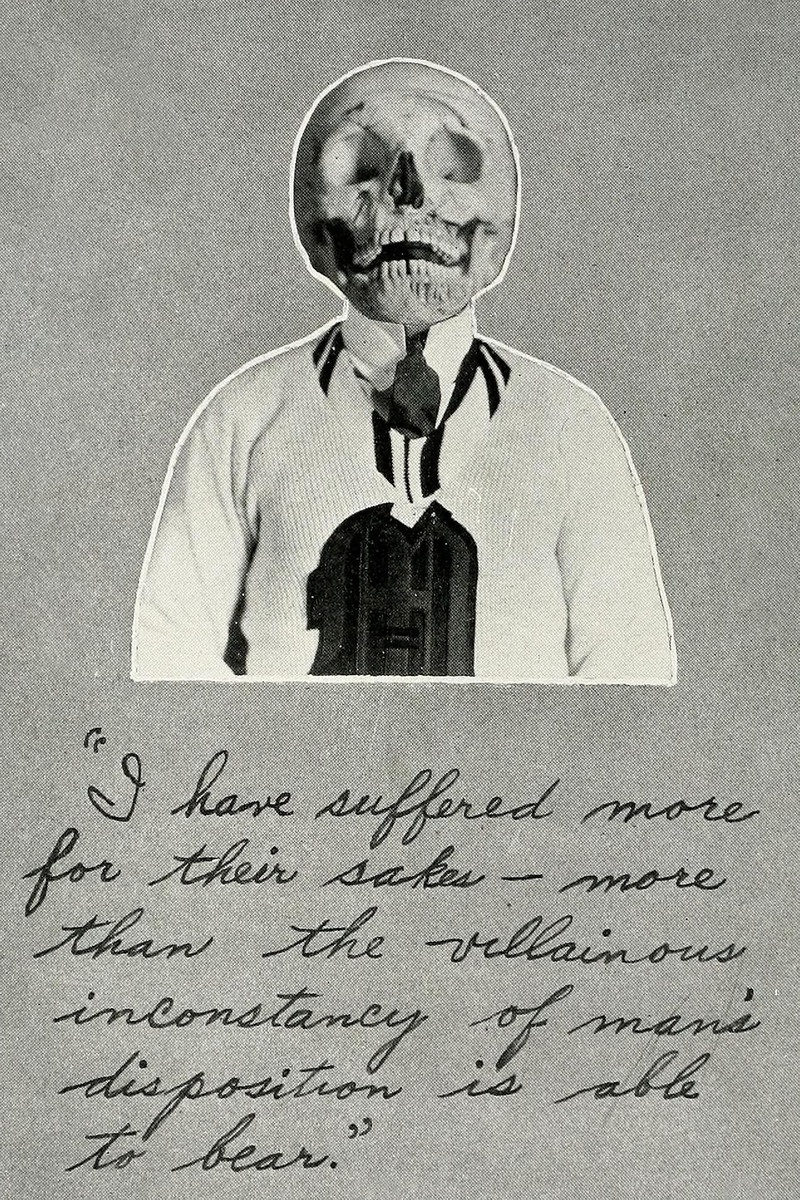 "I have suffered more
for their sakes — more
than the villainous
inconstancy of man's
disposition is able
to bear."